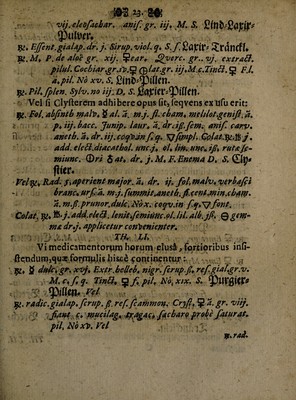 23.
vij. eleosachar. anis. gr. iij. M. S. Lind-Laxir-
Pulver.
℞. Essent. gialap. dr. j. Sirup. viol. q. S. s. Laxir-Tränckl.
℞. M. P. de aloë gr. xij. Querc. gr. vj. extract.
pilul. Cochiar. gr. iv. gr. iij. M. c. Tinct. ♀ F. l.
a. pil. No xv. S. Lind-Pillen.
℞. Pil. splen. Sylv. no iij. D. S. Laxier-Pillen.
Vel si Clysterem adhibere opus sit, seqvens ex usu erit:
℞. Fol. absinth malv. ☿ al. ā. m. j. fl. cham. melilot. genist. ā.
p. iij. bacc. Junip. laur. ā. dr. iß. sem. anis. carv.
aneth. ā. dr. ij. coqv. in s. q. ▽ simpl. Colat. ℞. ℔ j
add. elect. diacathol. unc. j. ol. lin. unc. iß, rutæ se-
miunc. at. dr. j. M. F. Enema D. S. Cly-
stier.
Vel ℞. Rad. 5. aperient. major. ā. dr. ij. fol. malv. verbasci
branc. urs. ā. m. j. summit. aneth. ß. cent. min. cham.
ā. m. ß. prunor. dulc. No x. coqv. in sq. ▽ font.
Colat. ℞. ℔ j. add. elect. lenit. semiunc. ol. lil. alb. jß, gem-
ma dr. j. applicetur convenienter.
TH. LI.
Vi medicamentorum horum elusâ, fortioribus insi-
stendum, quæ formulis hisce continentur:
℞. ☿ dulc. gr. xvj. Extr. helleb. nigr. scrup. ß. res. gial. gr. v.
M. c. s. q. Tinct. ♀ f. pil. No. xix. S. Purgier-
Pillen. Vel
℞. radic. gialap. scrup. ß. res. scammon. Cryst. ♀ ā. gr. viij.
fiant c. mucilag. tragac. sacharo probè saturat.
pil. No xv. Vel
℞. rad.